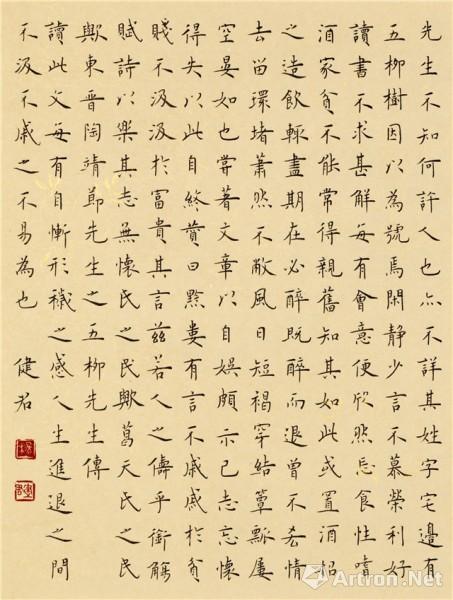 先生不知何許人也亦不詳其姓字宅邊有
五柳樹因以為號焉閑静少言不慕榮利好
讀書不求甚解每有會意便欣然忘食性嗜
酒家貧不能常得親舊知其如此或置酒招
之造飲輒盡期在必醉既醉而退曾不吝情
去留環堵蕭然不蔽風日短褐穿結簞瓢屢
空晏如也甞著文章以自娛頗示己志忘懷
得失以此自終贊曰黔婁有言不戚戚於貧
賤不汲汲於富貴其言茲若人之儔乎銜觴
賦詩以樂其志無懷氏之民歟葛天氏之民
歟東晋陶靖節先生之五柳先生傳
讀此文每有自慚形穢之感人生進退之間
不汲不戚之不易為也 健君
Artron.Net